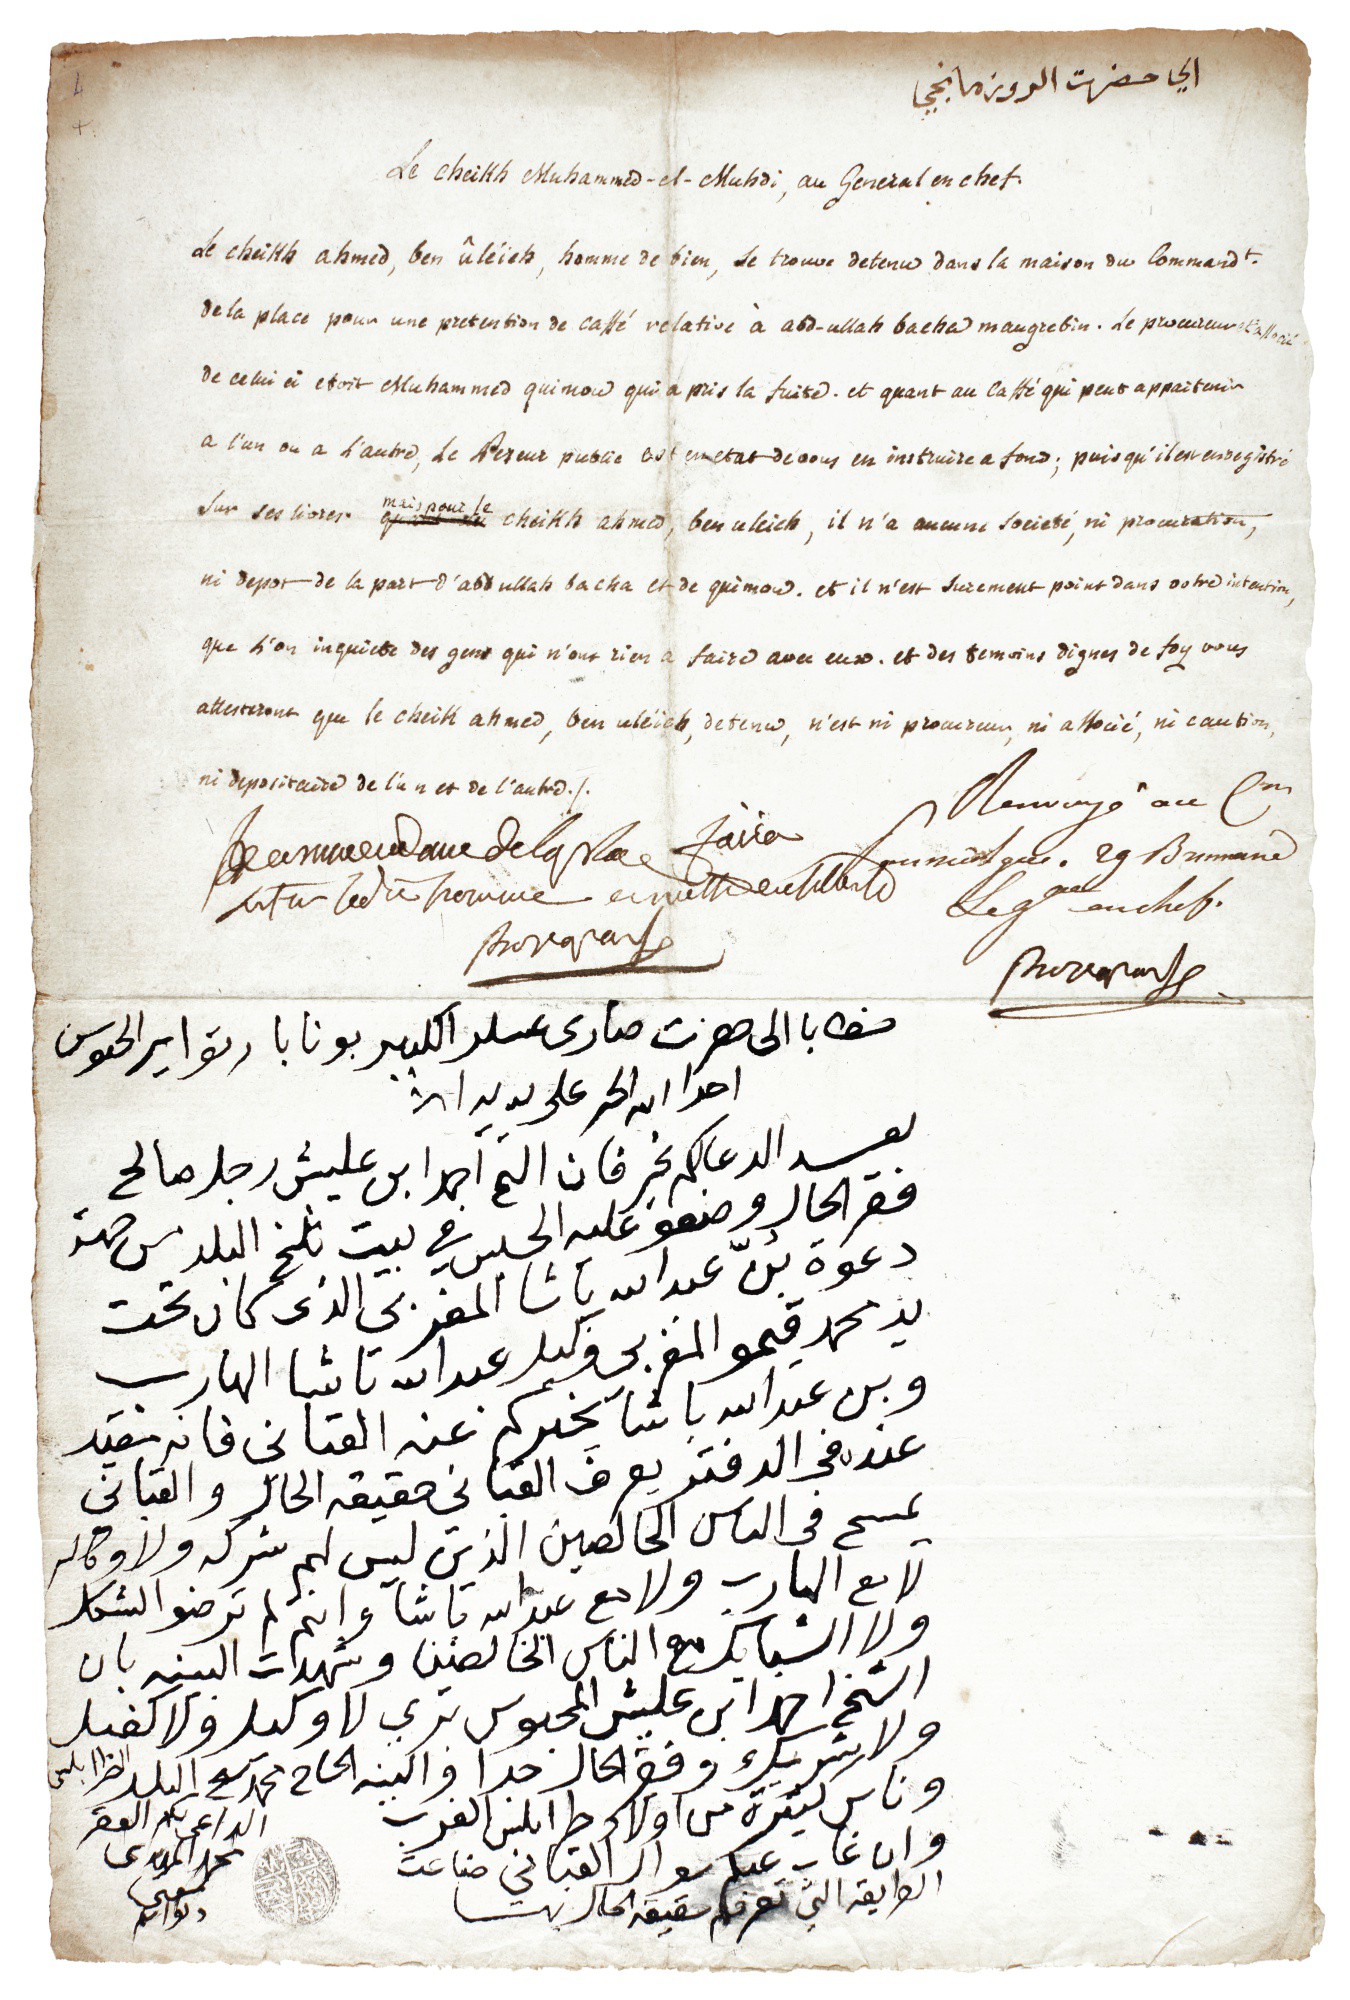 4
+
الي حضرت الروزمانجي
Le cheikh Muhammed-el-Muhdi, au General en chef.
Le cheikh ahmed, ben ûleïch, homme de bien, se trouve detenu dans la maison du Command.t
de la place pour une pretention de caffé relative à abd-ullah bacha maugrebin. Le procureur et associé
de celui ci etoit Muhammed quimou qui a pris la fuite. et quant au caffé qui peut appartenir
a l'un ou a l'autre, Le Peseur public est en etat de vous en instruire a fond; puisqu'il est enregistré
sur ses livres. mais pour le cheikh ahmed, ben uleich, il n'a aucune societé, ni procuration,
ni depot de la part d'abd ullah bacha et de quimou. et il n'est surement point dans votre intention,
que l'on inquiete des gens qui n'ont rien a faire avec eux. et des temoins dignes de foy vous
attesteront que le cheikh ahmed, ben uléich, detenu, n'est ni procureur, ni associé, ni caution,
ni depositaire de l'un et de l'autre./.
Renvoyé au C.en
Poussielgue. 29 Brumaire
Le g.al en chef.
Bonaparte
Le commandant de la place fera
homme et mettre en liberté
Bonaparte
خطابا الى حضرت صارى عسكر الكبير بونابارته امير الجيوش
بعد الدعا لكم بخير فان الشيخ احمد ابن عليش رجل صالح
فقير الحال وضعو عليه الحبس في بيت شيخ البلد من جهة
دعوة بن عبد الله باشا المغربي الذى كان تحت
يد محمد قيمو المغربي وكيل عبد الله باشا الهارب
وبن عبد الله باشا يخبركم عنه القبانى فانه متقيد
عنده فى الدفتر يعرف القبانى حقيقه الحال والقبانى
فى الناس الخالصين الذين ليس لهم شركه ولا وكاله
لا مع الهارب ولا مع عبد الله باشا وانتم لم ترضو
ولا مع الناس الخالصين وشهدت البينه بان
الشيخ احمد ابن عليش المحبوس بري لا وكيل ولا كفيل
ولا شريك وفقير الحال جدا والبينه الحاج محمد شيخ البلد الطرابلسى
وناس كثيرة من اولاد طرابلس الغرب
وان غاب عنكم سوال القبانى صاحب
حقيقة الحال
الداعى لكم الفقير
محمد المهدى